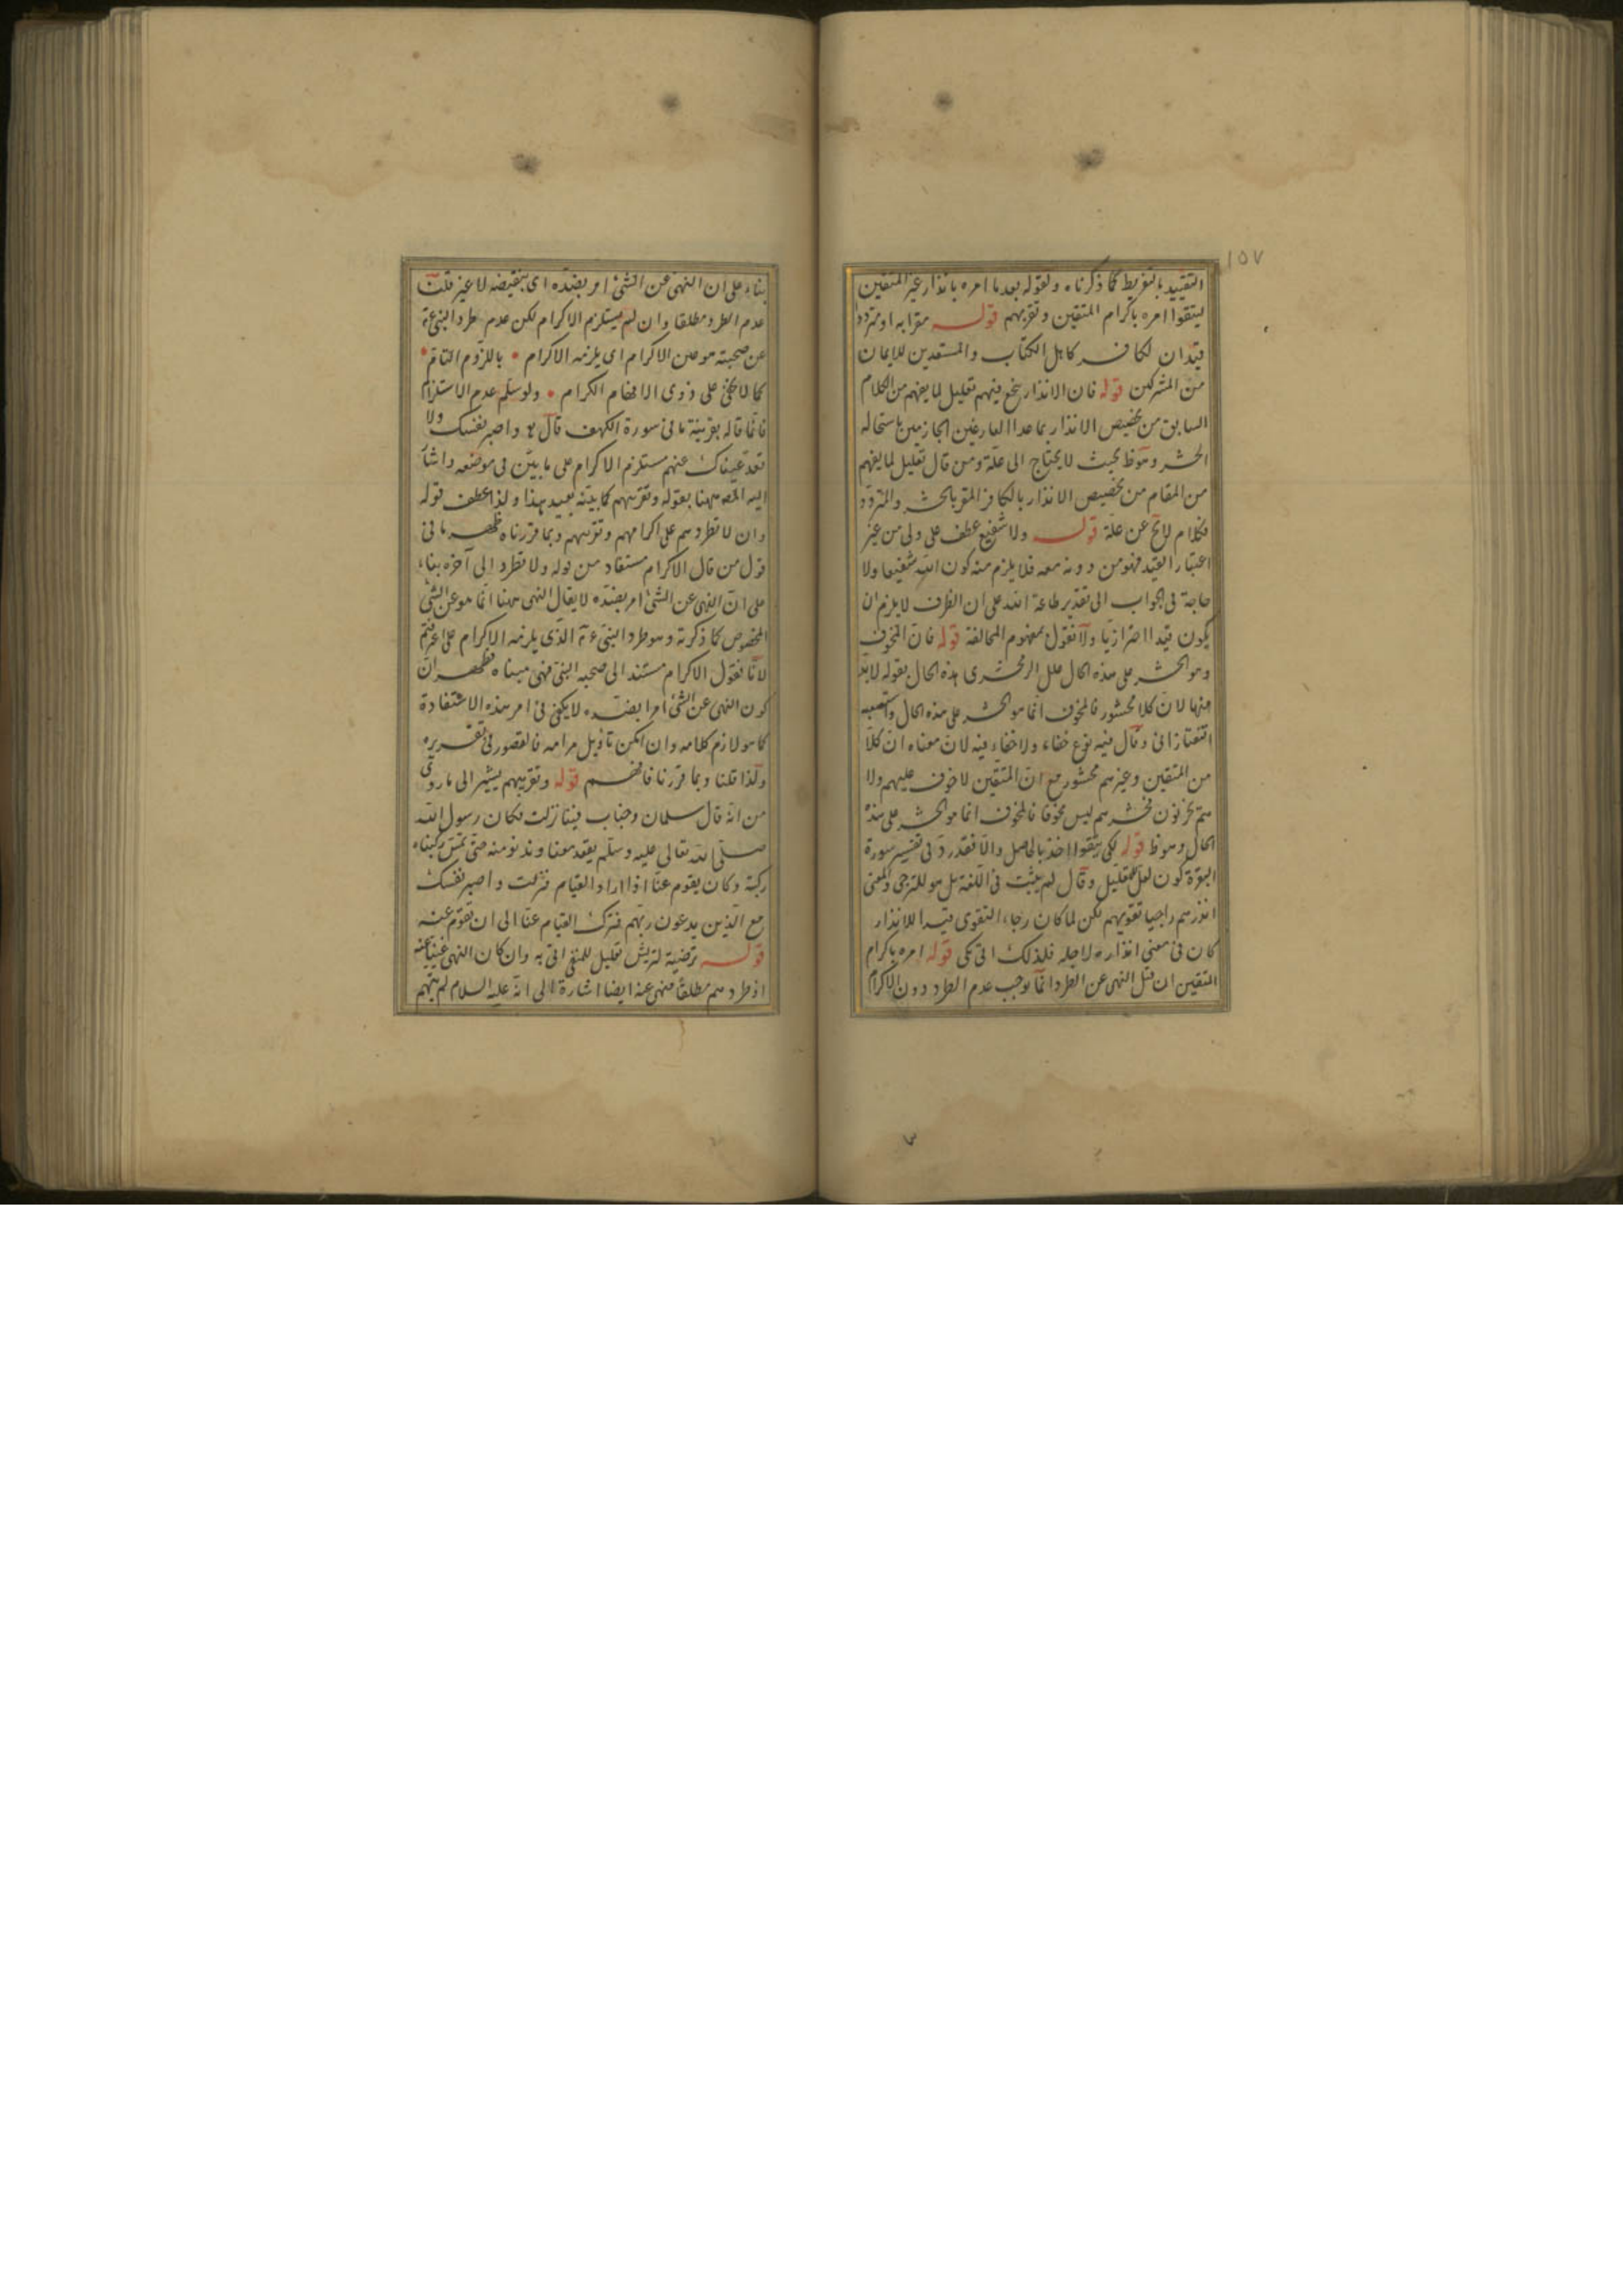 ١٥٧
التقييد بالتفريط كما ذكرناه ولقوله بعد ما امره بانذار غير المتقين
ليتقوا امره باكرام المتقين وتقريبهم قوله مقرا به او مترددا
قيدان للكافر كاهل الكتاب والمستعدين للايمان
من المشركين قوله فان الانذار ينجع فيهم تعليل لما يفهم من الكلام
السابق من تخصيص الانذار بما عدا الفارغين الجازمين باستحاله
الحشر وهو ظ بحيث لا يحتاج الى علة ومن قال تعليل لما يفهم
من المقام من تخصيص الانذار بالكافر المقر بالحشر والمتردد
فكلام لايح عن علة قوله ولا شفيع عطف على ولى من غير
اعتبار القيد فهو من دونه معه فلا يلزم منه كون الله شفيعا ولا
حاجة فى الجواب الى تقدير طاعة الله على ان الظرف لا يلزم ان
يكون قيدا احترازيا ولا نقول بمفهوم المخالفة قوله فان المخوف
وهو الحشر على هذه الحال علل الزمخشرى هذه الحال بقوله لا بد
منها لان كلا محشور فالمخوف انما هو الحشر على هذه الحال واستصعبه
التفتازانى وقال فيه نوع خفاء ولا خفاء فيه لان معناه ان كلا
من المتقين وغيرهم محشور مع ان المتقين لا خوف عليهم ولا
هم يحزنون فحشرهم ليس مخوفا فالمخوف انما هو الحشر على هذه
الحال وهو ظ قوله لكى يتقوا اخذ بالحاصل والا فقد رد فى تفسير سورة
البقرة كون لعل للتعليل وقال لم يثبت فى اللغة بل هو للترجى والمعنى
انذرهم راجيا تقويهم لكن لما كان رجاء التقوى قيدا للانذار
كان فى معنى انذاره لاجله فلذلك اتى بكى قوله امره باكرام
المتقين ان قيل النهى عن الطرد انما يوجب عدم الطرد دون الاكرام
بناء على ان النهى عن الشئ امر بضده اى بنقيضه لا غير قلت
عدم الطرد مطلقا وان لم يستلزم الاكرام لكن عدم طرد النبى عم
عن صحبته هو عين الاكرام اى يلزمه الاكرام • باللزوم التام •
كما لا يخفى على ذوى الافهام الكرام • ولو سلم عدم الاستلزام
فانما قاله بقرينة ما فى سورة الكهف قال واصبر نفسك ولا
تعد عيناك عنهم مستلزم الاكرام على ما بين فى موضعه واشار
اليه المص ههنا بقوله وتقريبهم كما بينه بعيد هذا ولذا عطف قوله
وان لا تطردهم على اكرامهم وتقريبهم وبما قررناه ظهر ما فى
قول من قال الاكرام مستفاد من قوله ولا تطرد الى آخره بناء
على ان النهى عن الشئ امر بضده لا يقال النهى ههنا انما هو عن الشئ
المخصوص كما ذكرته وهو طرد النبى عم الذى يلزمه الاكرام على اعترافكم
لانا نقول الاكرام مستند الى صحبه النبى فهى مبناه فظهر ان
كون النهى عن الشئ امرا بضده لا يكفى فى امر هذه الاستفادة
كما هو لازم كلامه وان امكن تاويل مرامه فالقصور فى تقريره
ولذا قلنا وبما قررنا فافهم قوله وتقريبهم يشير الى ما روى
من انه قال سلمان وخباب فينا نزلت فكان رسول الله
صلى الله تعالى عليه وسلم يقعد معنا وندنو منه حتى تمس ركبناه
ركبة وكان يقوم عنا اذا اراد القيام فنزلت واصبر نفسك
مع الذين يدعون ربهم فترك القيام عنا الى ان نقوم عنه
قوله ترضية لقريش تعليل للمنفى اتى به وان كان النهى غنيا عنه
اذ طردهم مطلقا منهى عنه ايضا اشارة الى انه عليه السلام لم يتهم